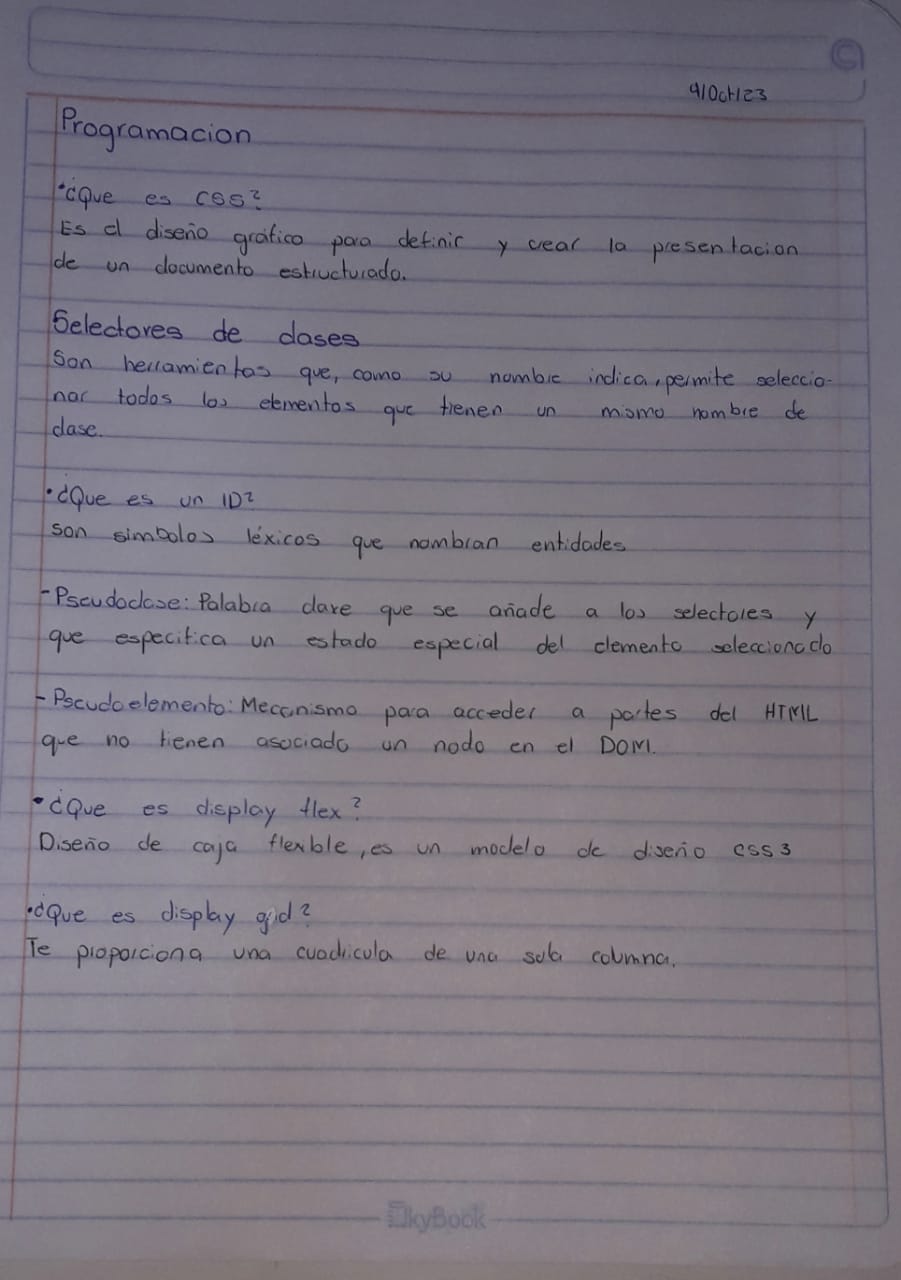 9/Oct/23
Programacion
•¿Que es CSS?
Es el diseño gráfico para definir y crear la presentacion
de un documento estructurado.
Selectores de clases
Son herramientas que, como su nombre indica, permite seleccio-
nar todos los elementos que tienen un mismo nombre de
clase.
•¿Que es un ID?
Son simbolos léxicos que nombran entidades
-Pseudoclase: Palabra clave que se añade a los selectores y
que especifica un estado especial del elemento seleccionado
-Pseudoelemento: Mecanismo para acceder a partes del HTML
que no tienen asociado un nodo en el DOM.
•¿Que es display flex?
Diseño de caja flexible, es un modelo de diseño css3
•¿Que es display grid?
Te proporciona una cuadricula de una sola columna.
SkyBook